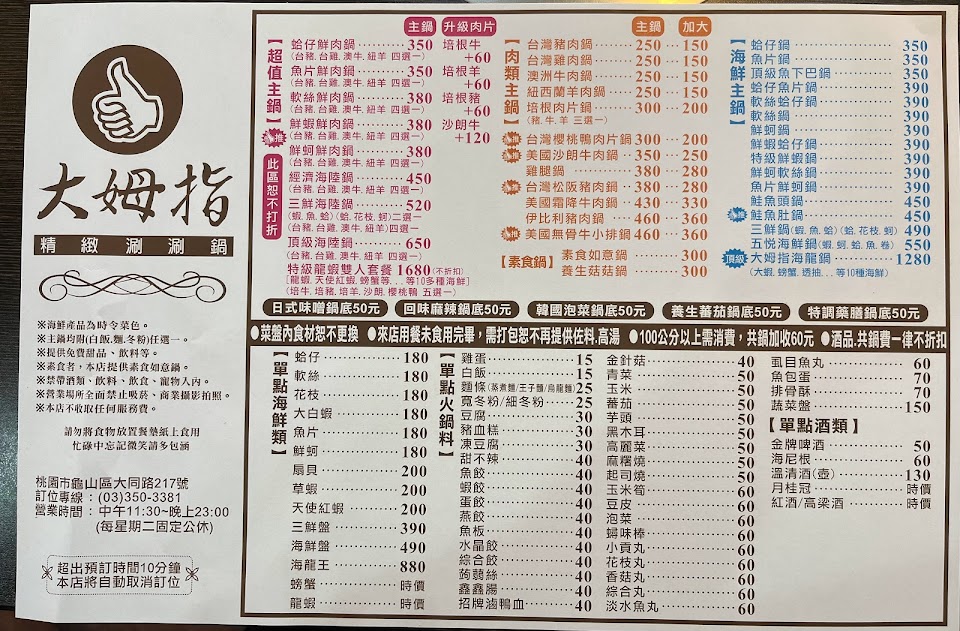 大姆指
精緻涮涮鍋
※海鮮產品為時令菜色。
※主鍋均附(白飯.麵.冬粉)任選一。
※提供免費甜品、飲料等。
※素食者,本店提供素食如意鍋。
※禁帶酒類、飲料、飲食、寵物入內。
※營業場所全面禁止吸菸、商業攝影拍照。
※本店不收取任何服務費。
請勿將食物放置餐墊紙上食用
忙碌中忘記微笑請多包涵
桃園市龜山區大同路217號
訂位專線:(03)350-3381
營業時間:中午11:30~晚上23:00
(每星期二固定公休)
超出預訂時間10分鐘
本店將自動取消訂位
主鍋 升級肉片
【超值主鍋】
此區恕不打折
蛤仔鮮肉鍋 350
(台豬.台雞.澳牛.紐羊 四選一)
魚片鮮肉鍋 350
(台豬.台雞.澳牛.紐羊 四選一)
軟絲鮮肉鍋 380
(台豬.台雞.澳牛.紐羊 四選一)
鮮蝦鮮肉鍋 380
(台豬.台雞.澳牛.紐羊 四選一)
鮮蚵鮮肉鍋 380
(台豬.台雞.澳牛.紐羊 四選一)
經濟海陸鍋 450
(台豬.台雞.澳牛.紐羊 四選一)
三鮮海陸鍋 520
(蝦.魚.蛤)(蛤.花枝.蚵)二選一
(台豬.台雞.澳牛.紐羊 四選一)
頂級海陸鍋 650
(台豬.台雞.澳牛.紐羊 四選一)
特級龍蝦雙人套餐 1680(不折扣)
[龍蝦.天使紅蝦.螃蟹等...等10多種海鮮]
(培牛.培豬.培羊.沙朗.櫻桃鴨 五選一)
培根牛
+60
培根羊
+60
培根豬
+60
沙朗牛
+120
主鍋 加大
【肉類主鍋】
台灣豬肉鍋 250 150
台灣雞肉鍋 250 150
澳洲牛肉鍋 250 150
紐西蘭羊肉鍋 250 150
培根肉片鍋 300 200
(豬.牛.羊 三選一)
台灣櫻桃鴨肉片鍋 300 200
美國沙朗牛肉鍋 350 250
雞腿鍋 380 280
台灣松阪豬肉鍋 380 280
美國霜降牛肉鍋 430 330
伊比利豬肉鍋 460 360
美國無骨牛小排鍋 460 360
【素食鍋】
素食如意鍋 300
養生菇菇鍋 300
【海鮮主鍋】
蛤仔鍋 350
魚片鍋 350
頂級魚下巴鍋 350
蛤仔魚片鍋 390
軟絲蛤仔鍋 390
軟絲鍋 390
鮮蚵鍋 390
鮮蝦蛤仔鍋 390
特級鮮蝦鍋 390
鮮蚵軟絲鍋 390
魚片鮮蚵鍋 390
鮭魚頭鍋 450
鮭魚肚鍋 450
三鮮鍋(蝦.魚.蛤)(蛤.花枝.蚵) 490
五悅海鮮鍋(蝦.蚵.蛤.魚.卷) 550
頂級 大姆指海龍鍋 1280
(大蝦.螃蟹.透抽...等10種海鮮)
日式味噌鍋底50元 回味麻辣鍋底50元 韓國泡菜鍋底50元 養生蕃茄鍋底50元 特調藥膳鍋底50元
●菜盤內食材恕不更換 ●來店用餐未食用完畢,需打包恕不再提供佐料.高湯 ●100公分以上需消費,共鍋加收60元 ●酒品.共鍋費一律不折扣
【單點海鮮類】
蛤仔 180
軟絲 180
花枝 180
大白蝦 180
魚片 180
鮮蚵 180
扇貝 200
草蝦 200
天使紅蝦 200
三鮮盤 390
海鮮盤 490
海龍王 880
螃蟹 時價
龍蝦 時價
【單點火鍋料】
雞蛋 15
白飯 15
麵條(蒸煮麵/王子麵/烏龍麵) 25
寬冬粉/細冬粉 25
豆腐 30
豬血糕 30
凍豆腐 30
甜不辣 40
魚餃 40
蝦餃 40
蛋餃 40
燕餃 40
魚板 40
水晶餃 40
綜合餃 40
蒟蒻絲 40
鑫鑫腸 40
招牌滷鴨血 40
金針菇 40
青菜 50
玉米 50
蕃茄 50
芋頭 50
黑木耳 50
高麗菜 50
麻糬燒 50
起司燒 50
玉米筍 60
豆皮 60
泡菜 60
蟳味棒 60
小貢丸 60
花枝丸 60
香菇丸 60
綜合丸 60
淡水魚丸 60
虱目魚丸 60
魚包蛋 70
排骨酥 70
蔬菜盤 150
【單點酒類】
金牌啤酒 50
海尼根 60
溫清酒(壺) 130
月桂冠 時價
紅酒/高梁酒 時價